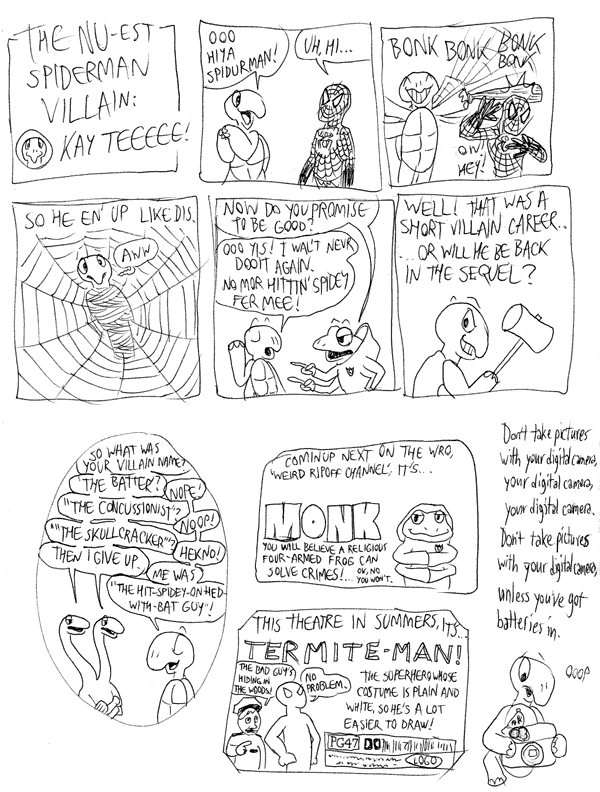 THE NU-EST
SPIDERMAN
VILLAIN:
KAY TEEEEE!
OOO
HIYA
SPIDURMAN!
UH, HI...
BONK BONK BONK
BONK
OW!
HEY!
SO HE EN' UP LIKE DIS.
AWW
NOW DO YOU PROMISE
TO BE GOOD?
OOO YIS! I WAL'T NEVR
DOOIT AGAIN.
NO MOR HITTIN' SPIDEY
FER MEE!
WELL! THAT WAS A
SHORT VILLAIN CAREER..
...OR WILL HE BE BACK
IN THE SEQUEL?
SO WHAT WAS
YOUR VILLAIN NAME?
"THE BATTER"?
NOPE!
"THE CONCUSSIONIST"?
NOOP!
"THE SKULLCRACKER"?
HEKNO!
THEN I GIVE UP.
ME WAS
"THE HIT-SPIDEY-ON-HED-
WITH-BAT GUY"!
COMIN UP NEXT ON THE WRO,
'WEIRD RIPOFF CHANNEL', IT'S...
MONK
YOU WILL BELIEVE A RELIGIOUS
FOUR-ARMED FROG CAN
SOLVE CRIMES!... OK, NO
YOU WON'T.
THIS THEATRE IN SUMMERS, IT'S...
TERMITE-MAN!
THE BAD GUY'S
HIDING IN
THE WOODS!
NO
PROBLEM.
THE SUPERHERO WHOSE
COSTUME IS PLAIN AND
WHITE, SO HE'S A LOT
EASIER TO DRAW!
PG47
LOGO
Don't take pictures
with your digital camera,
your digital camera,
your digital camera.
Don't take pictures
with your digital camera,
unless you've got
batteries in.
OOOP